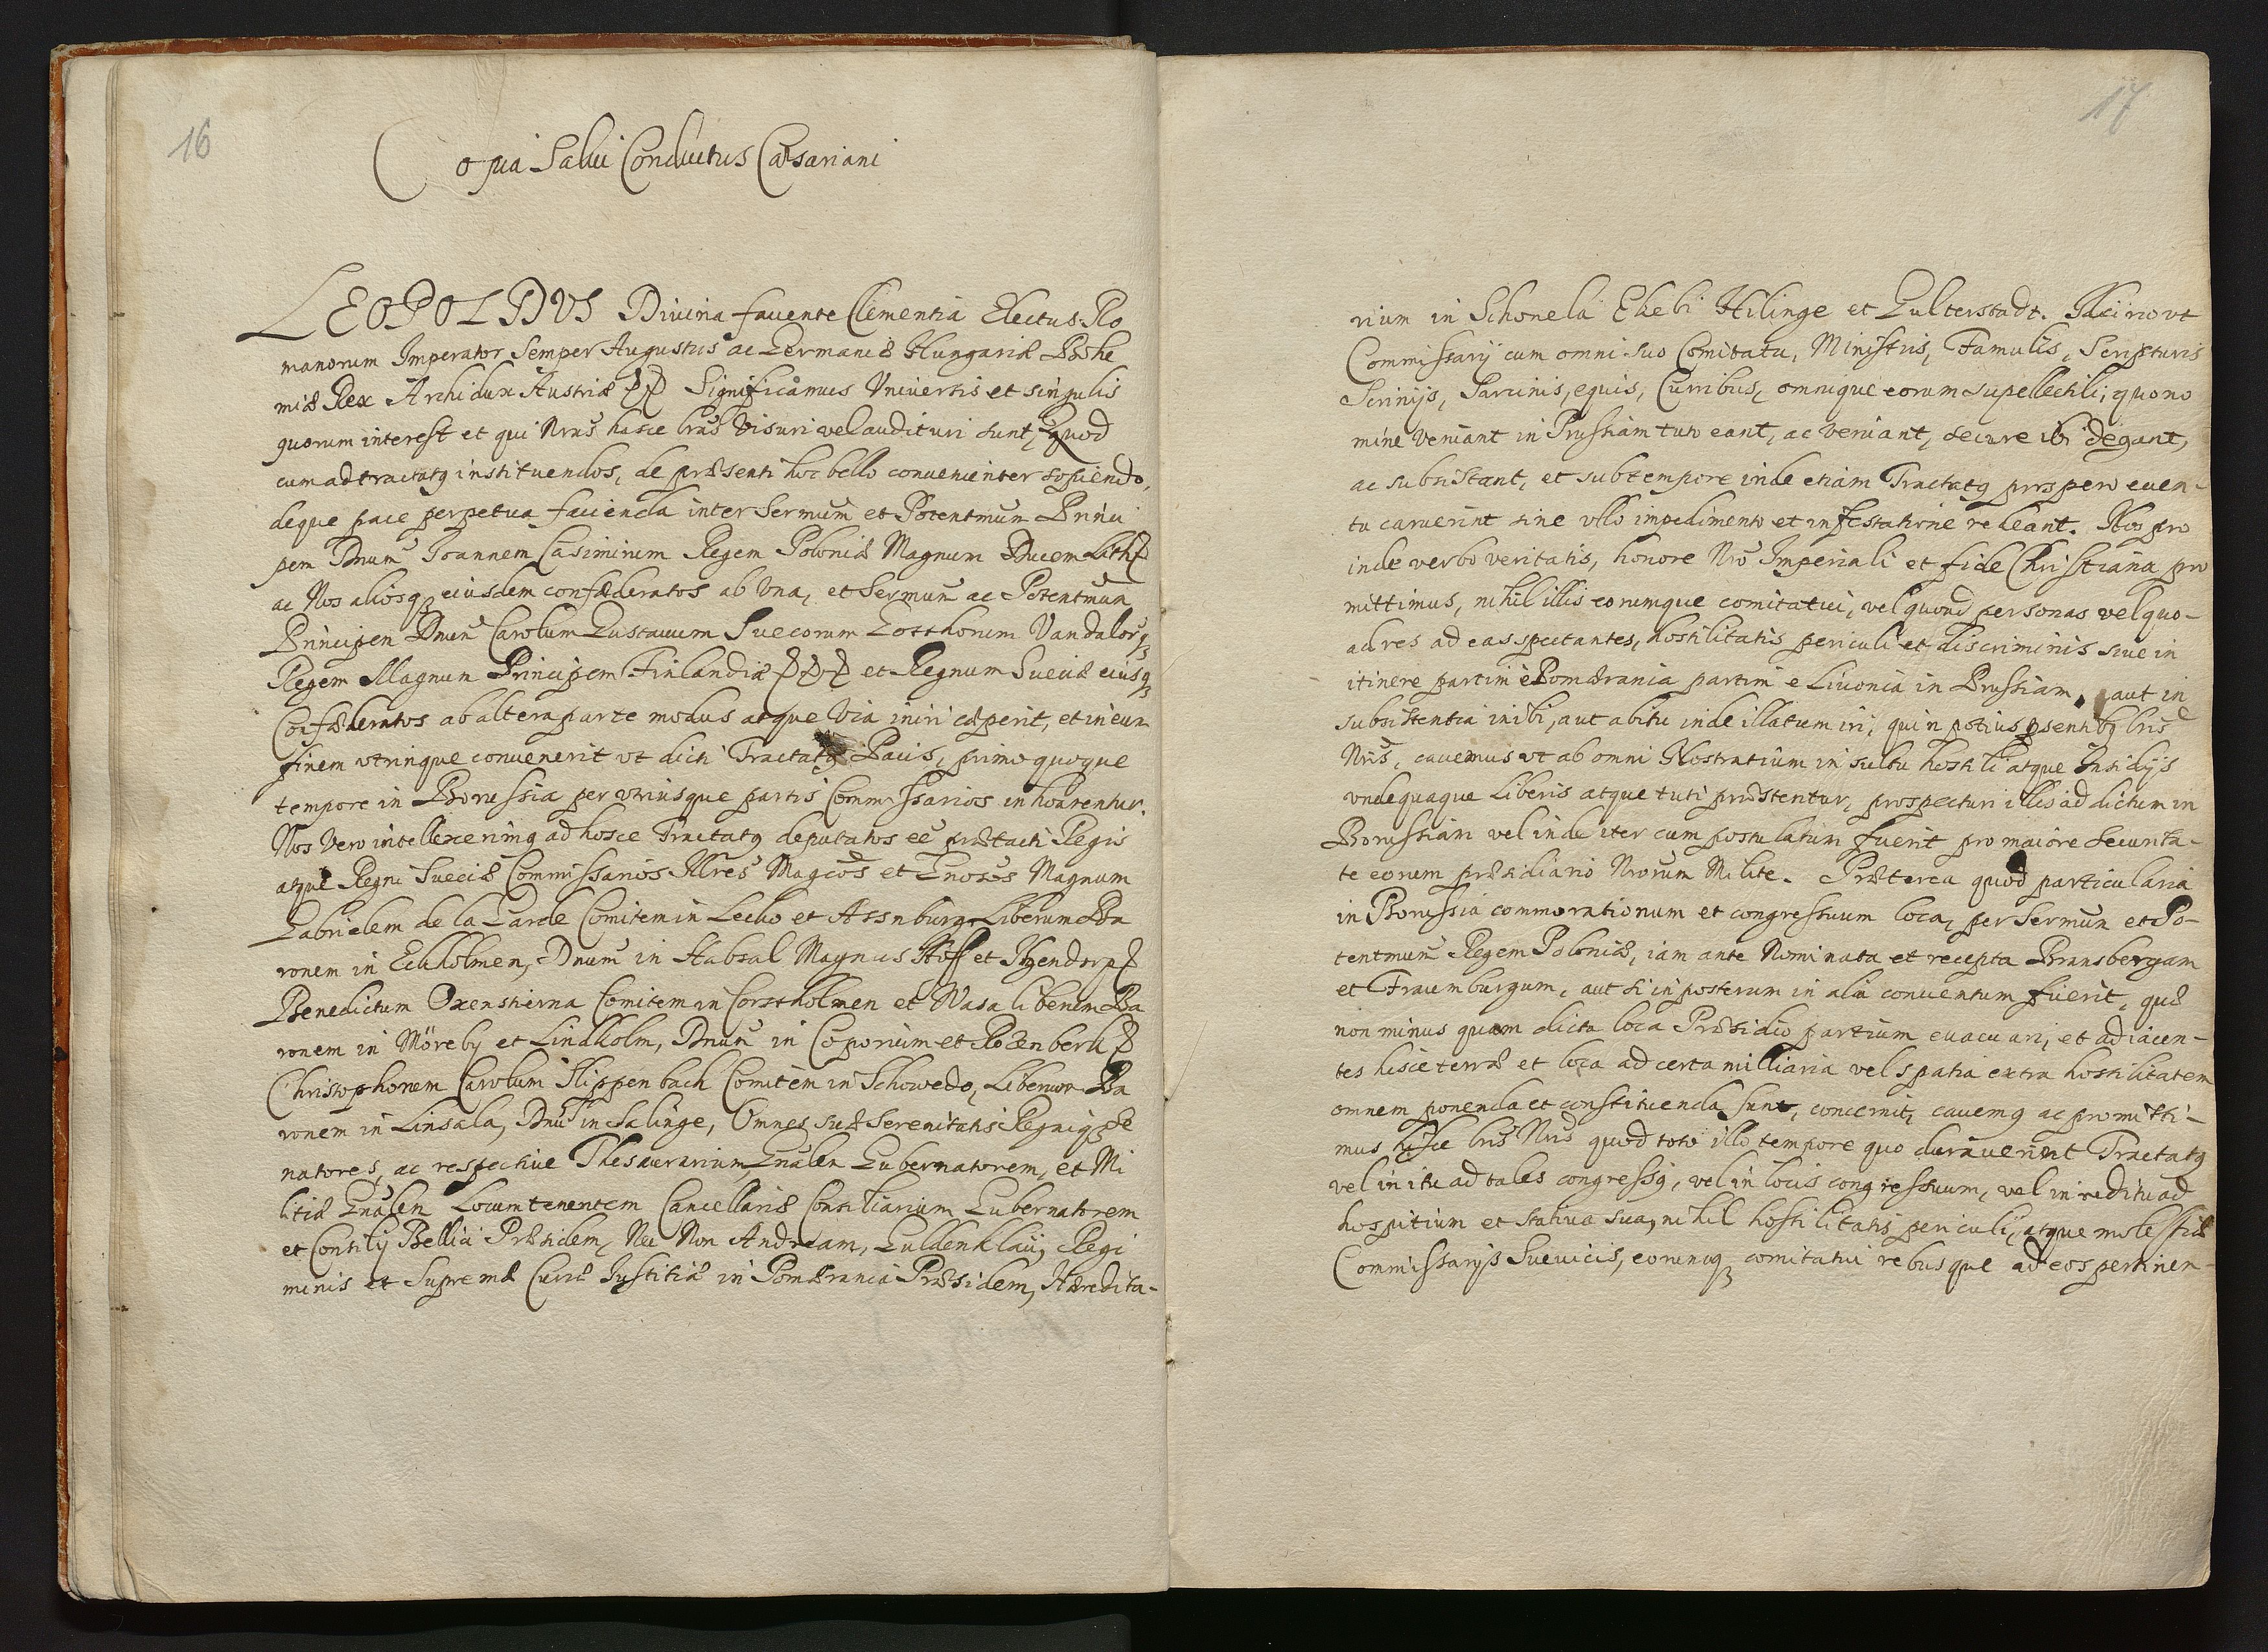 16
Copia Salui Conductus Cæsariani
LEOPOLDVS Diuina fauente Clementia Electus Ro
manorum Imperator Semper Augustus ac Germaniæ Hungariæ Bohe
miæ Rex Archidux Austriæ Significamus Vniuersis et singulis
quorum interest et qui Nrãs hasce lrãs visuri vel audituri sunt, Quod
cum ad tractatq instituendos, de præsenti hoc bello conuenienter sopiendo,
deque pace perpetua facienda inter Sermum et Potentmum Princi
pem Dnum Joannem Casimirum Regem Poloniæ Magnum Ducem Lith
ac Nos aliosq eiusdem confæderatos ab Vna, et Sermum ac Potentmum
Principem Dnum Carolum Gustauum Suecorum Gotthorum Vandalorq
Regem Magnum Principem Finlandiæ et Regnum Sueciæ eiusq
Confæderatos ab altera parte modus atque Via iniri cæperit, et in eum
finem vtrinque conuenerit vt dicti Tractatq Pacis, primo quoque
tempore in Borussia per vtriusque partis Commissarios inhoarentur.
Nos Vero intellexerimq ad hosce Tractatq deputatos eē prætacti Regis
atque Regni Sueciæ Commissarios Illres Magcos et Gnosos Magnum
Gabrielem de la Garde Comitem in Lecko et Arsnburg Liberum Ba
ronem in Eckholmen, Dnum in Habsal Magnus Hoff et Hendorp
Benedictum Oxenstierna Comitem in Corstholmen et Wasa liberum Ba
ronem in Möreby et Lindholm, Dnum in Coporium et Rozenberk
Christophorum Carolum Slippenbach Comitem in Schowedo, Liberum Ba
ronem in Linsala, Dnũ in Salinge, Omnes suæ Serenitatis Regniq Se
natores, ac respectiue Thesaurarium Gnãlen Gubernatorem, et Mi
litiæ Gnãlen Locumtenentem Cancellariæ Consiliarium Gubernatorem
et Consilij Bellici Præsidem, Nec Non Andream, Guldenklau, Regi
minis et Supremæ Curiæ Justitiæ in Pomerania Præsidem, Hæredita-
17
rium in Schonela Ekebi Hilinge et Gulterstadt. Ita vt
Commissarij cum omni suo Comitatu, Ministris, Famulis, Scripturis
Scrinijs, Sarcinis, equis, Curribus, omnique eorum supellectili, quo no
mine Veniant in Prussiam tuto eant, ac Veniant, secure ibi degant,
ac subsistant, et sub tempore inde etiam Tractatq prospero euen-
tu caruerint sine vllo impedimento et infestatione redeant. Nos pro
inde verbo veritatis, honore Nrõ Imperiali et fide Christiana pro
mittimus, nihil illis eorumque comitatui, vel quoad personas vel quo-
ad res ad eas spectantes, hostilitatis periculi et discriminis siue in
itinere partim è Pomerania partim e Liuonia in Prussiam, aut in
subsistentia inibi, aut abitu inde illatum iri, quin potius psentibq lris
Nris, cauemus vt ab omni Nostratium insultu hostili atque Insidijs
vndequaque Liberis atque tuti præstentur, prospecturi illis ad dictum in
Borussiam vel inde iter cum postulatum fuerit pro maiore securita-
te eorum præsidiario Nrorum Milite. Præterea quod particularia
in Borussia commorationum et congressuum loca, per Sermum et Po-
tentmum Regem Poloniæ, iam ante Nominata et recepta Bransbergam
et Fraumburgum, aut si in posterum in alia conuentum fuerit, quæ
non minus quam dicta loca Præsidio partium euacuari, et adiacen-
tes hisce terræ et loca ad certa milliaria vel spatia extra hostilitatem
omnem ponenda et constituenda sunt, concernit, cauemq ac promitti-
mus hisce lris Nris quod toto illo tempore quo durauerint Tractatq
vel in itu ad tales congressq, vel in locis congressuum, vel in reditu ad
hospitium et statiua sua, nihil hostilitatis periculi, atque molestiæ
Commissarijs Suecicis, eorumq comitatui rebusque ad eos pertinen-